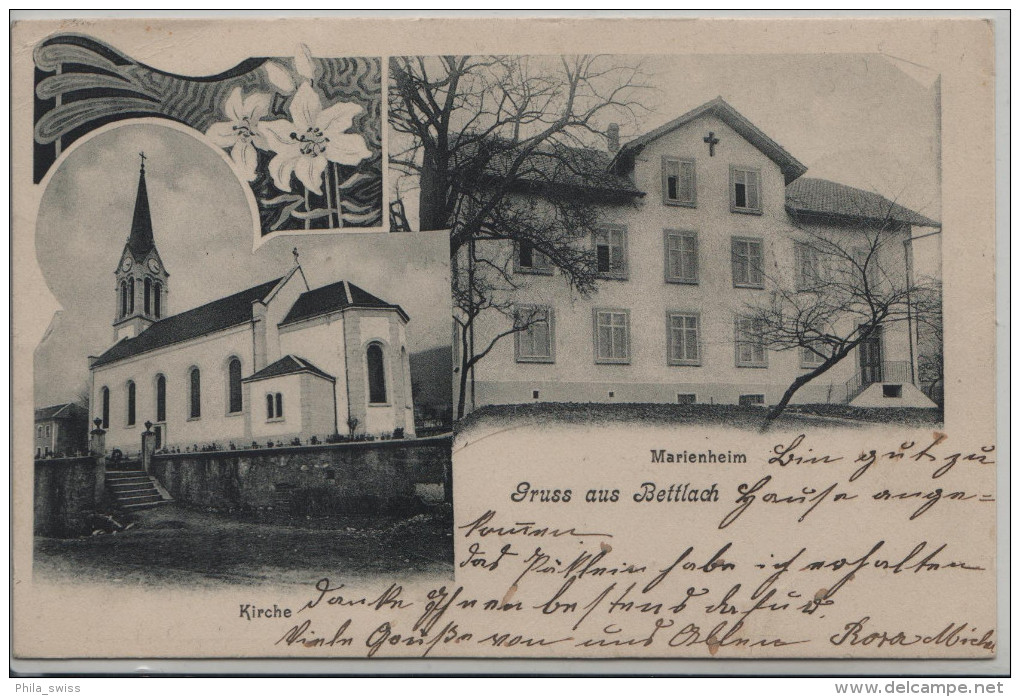 Marienheim
Gruss aus Bettlach
Kirche
Bin gut zu
Hause ange=
kom̅en
das Päklein habe ich erhalten
danke Ihnen bestens dafür.
Viele Grüße von uns Allen Rosa
Phila_swiss
www.delcampe.net